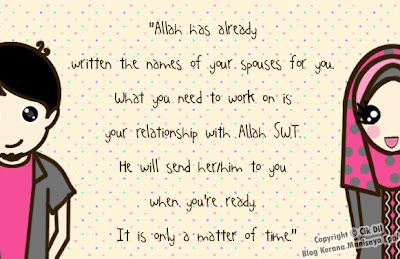 "Allah has already
written the names of your spouses for you.
What you need to work on is
your relationship with Allah SWT.
He will send her/him to you
when you're ready.
It is only a matter of time."
Copyright © Cik Dil
Blog Kerana Manisnya